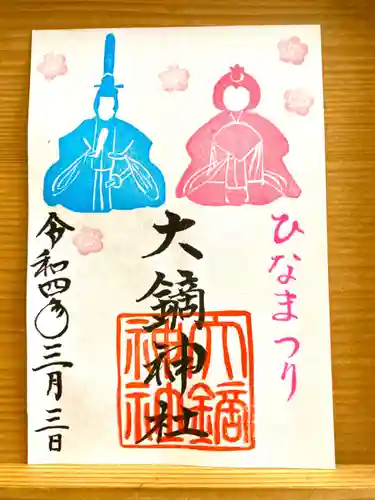 ひなまつり
大鏑神社
大鏑神社
令和四年三月三日